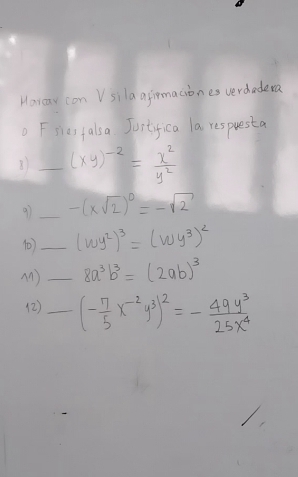 Marcar con V si la afirmación es verdadera
o F si es falsa Justifica la respuesta
8) __ (xy)⁻² = x²/y²
9) __ -(x√2)⁰ = -√2
10) __ (wy²)³ = (wy³)²
11) __ 8a³b³ = (2ab)³
12) __ (-7/5 x⁻² y³)² = - 49y³/25x⁴